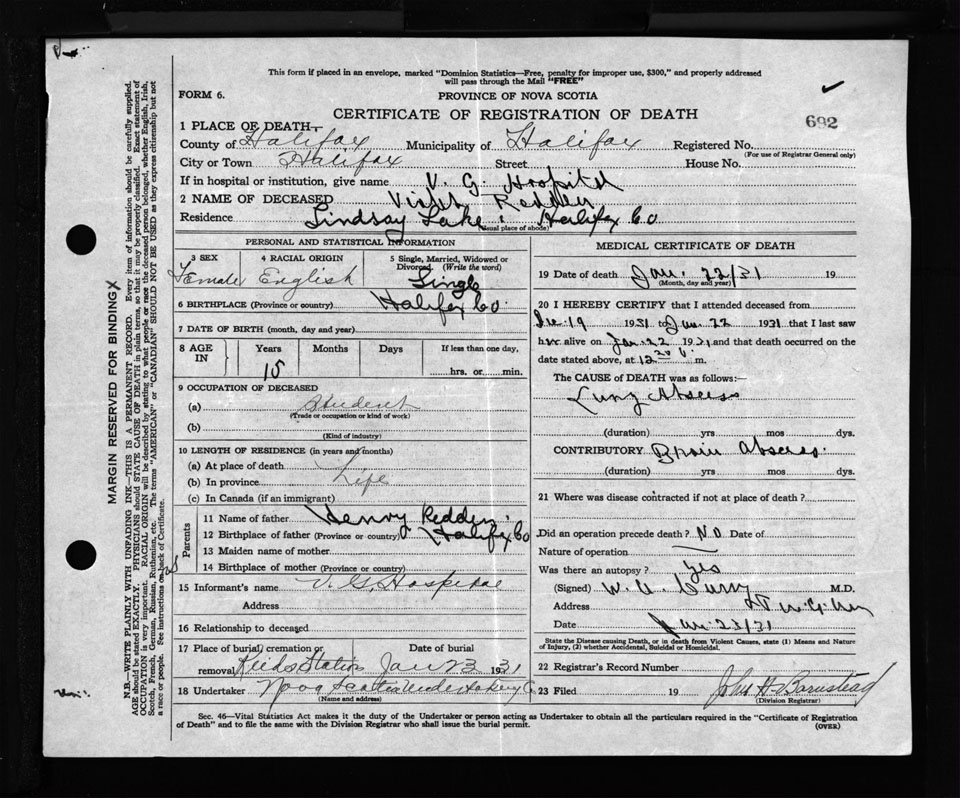 This form if placed in an envelope, marked "Dominion Statistics—Free, penalty for improper use, $300," and properly addressed
will pass through the Mail "FREE"
FORM 6.
PROVINCE OF NOVA SCOTIA
CERTIFICATE OF REGISTRATION OF DEATH
692
1 PLACE OF DEATH—
County of Halifax Municipality of Halifax Registered No.
(For use of Registrar General only)
City or Town Halifax Street House No.
If in hospital or institution, give name V. G. Hospital
2 NAME OF DECEASED Violet Redden
Residence Lindsay Lake, Halifax Co
(Usual place of abode)
PERSONAL AND STATISTICAL INFORMATION
3 SEX
Female
4 RACIAL ORIGIN
English
5 Single, Married, Widowed or
Divorced. (Write the word)
Single
6 BIRTHPLACE (Province or country) Halifax Co.
7 DATE OF BIRTH (month, day and year)
8 AGE
IN
Years
15
Months
Days
If less than one day,
hrs. or min.
9 OCCUPATION OF DECEASED
(a) Student
(Trade or occupation or kind of work)
(b)
(Kind of industry)
10 LENGTH OF RESIDENCE (in years and months)
(a) At place of death
(b) In province Life
(c) In Canada (if an immigrant)
Parents
11 Name of father Henry Redden
12 Birthplace of father (Province or country) Halifax Co
13 Maiden name of mother
14 Birthplace of mother (Province or country)
15 Informant's name V. G. Hospital
Address
16 Relationship to deceased
17 Place of burial, cremation or
Date of burial
removal Reids Station Jan 23 1931
18 Undertaker Nova Scotia Undertaking Co
(Name and address)
MEDICAL CERTIFICATE OF DEATH
19 Date of death Jan. 22/31 19
(Month, day and year)
20 I HEREBY CERTIFY that I attended deceased from
Dec 19 1931 to Jan. 22 1931 that I last saw
her alive on Jan. 22 1931 and that death occurred on the
date stated above, at 12 20 m.
The CAUSE OF DEATH was as follows:—
Lung Abscess
(duration) yrs mos dys.
CONTRIBUTORY Brain Abscess.
(duration) yrs mos dys.
21 Where was disease contracted if not at place of death?
Did an operation precede death? No Date of
Nature of operation
Was there an autopsy? Yes
(Signed) W. A. Curry M.D.
Address
Date Jan. 23/31
State the Disease causing Death, or in death from Violent Causes, state (1) Means and Nature of
Injury, (ii) whether Accidental, Suicidal or Homicidal.
22 Registrar's Record Number
23 Filed 19 John H Barnstead
(Division Registrar)
Sec. 46—Vital Statistics Act makes it the duty of the Undertaker or person acting as Undertaker to obtain all the particulars required in the "Certificate of Registration
of Death" and to file the same with the Division Registrar who shall issue the burial permit.
(OVER)
MARGIN RESERVED FOR BINDING
N.B.—WRITE PLAINLY WITH UNFADING INK—THIS IS A PERMANENT RECORD. Every item of information should be carefully supplied.
AGE should be stated EXACTLY. PHYSICIANS should STATE CAUSE OF DEATH in plain terms, so that it may be properly classified. Exact statement of
OCCUPATION is very important. RACIAL ORIGIN will be described by stating to what people or race the deceased person belonged, whether English, Irish,
Scotch, French, German, Russian, Ruthenian, etc. The terms "AMERICAN" or "CANADIAN" SHOULD NOT BE USED as they express citizenship but not
a race or people. See instructions on back of Certificate.